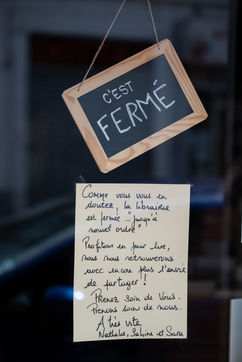 C'EST
FERMÉ
Comme vous vous en
doutez, la librairie
est fermée "jusqu'à
nouvel ordre"
Profitons en pour lire,
nous nous retrouverons
avec encore plus l'envie
de partager !
Prenez soin de vous.
Prenons soin de nous.
A très vite
Nathalie, Sabine et Sara